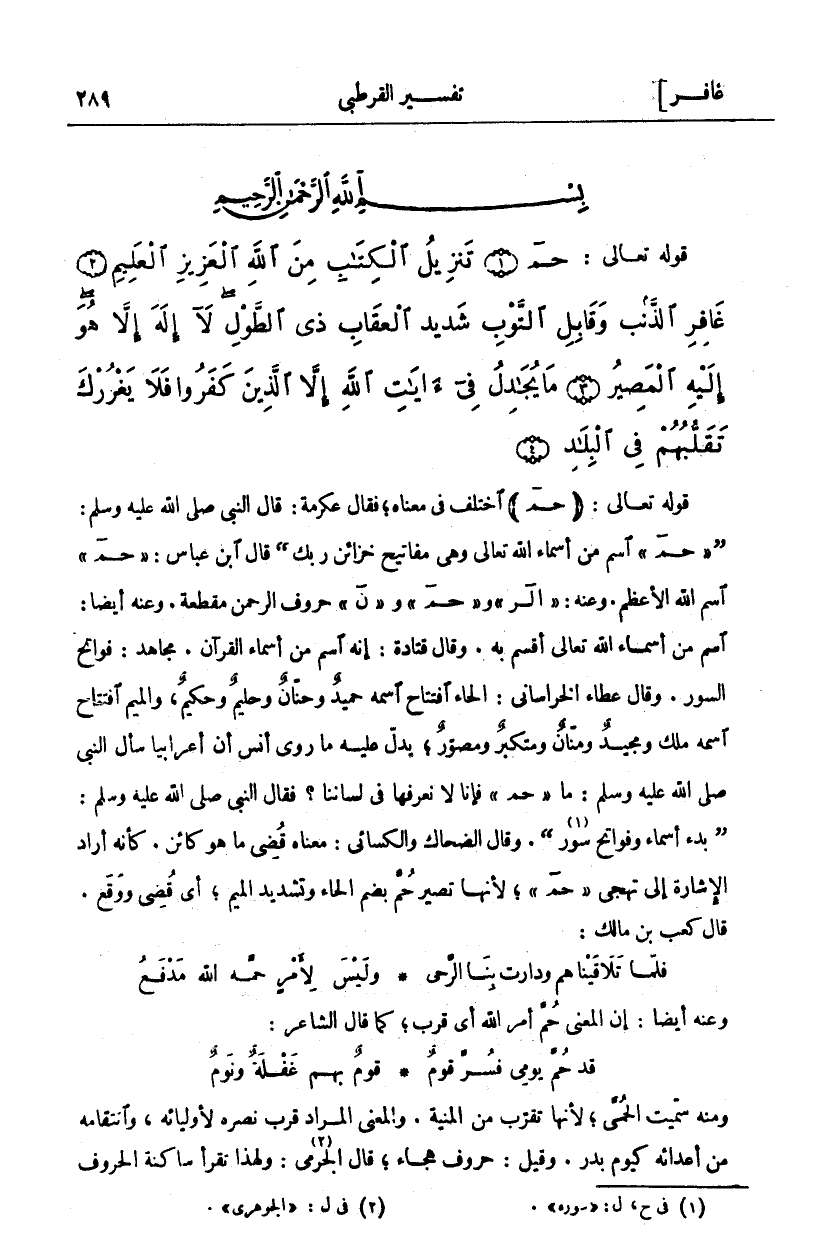 غافر] تفسير القرطبي ٢٨٩
بِسْمِ ٱللَّهِ ٱلرَّحْمَٰنِ ٱلرَّحِيمِ
قوله تعالى : حمٓ ﴿١﴾ تَنزِيلُ ٱلْكِتَٰبِ مِنَ ٱللَّهِ ٱلْعَزِيزِ ٱلْعَلِيمِ ﴿٢﴾
غَافِرِ ٱلذَّنۢبِ وَقَابِلِ ٱلتَّوْبِ شَدِيدِ ٱلْعِقَابِ ذِى ٱلطَّوْلِ ۖ لَآ إِلَٰهَ إِلَّا هُوَ ۖ
إِلَيْهِ ٱلْمَصِيرُ ﴿٣﴾ مَا يُجَٰدِلُ فِىٓ ءَايَٰتِ ٱللَّهِ إِلَّا ٱلَّذِينَ كَفَرُوا فَلَا يَغْرُرْكَ
تَقَلُّبُهُمْ فِى ٱلْبِلَٰدِ ﴿٤﴾
قوله تعالى : ﴿ حـمٓ ﴾ ٱختلف فى معناه؛ فقال عكرمة: قال النبي صلى الله عليه وسلم :
”« حـمٓ » ٱسم من أسماء الله تعالى وهى مفاتيح خزائن ربك“ قال ٱبن عباس : « حـمٓ »
ٱسم الله الأعظم. وعنه: « الٓر » و« حـمٓ » و « نٓ » حروف الرحمن مقطعة. وعنه أيضا:
ٱسم من أسماء الله تعالى أقسم به . وقال قتادة : إنه ٱسم من أسماء القرآن . مجاهد : فواتح
السور . وقال عطاء الخراسانى : الحاء ٱفتتاح ٱسمه حميدٌ وحنّانٌ وحليمٌ وحكيمٌ، والميم ٱفتتاح
ٱسمه ملك ومجيدٌ ومنّانٌ ومتكبرٌ ومصوّرٌ؛ يدلّ عليه ما روى أنس أن أعرابيا سأل النبي
صلى الله عليه وسلم : ما « حم » فإنا لا نعرفها فى لساننا ؟ فقال النبي صلى الله عليه وسلم :
” بدء أسماء وفواتح سُوَر(١) “ . وقال الضحاك والكسائى : معناه قُضِى ما هو كائن . كأنه أراد
الإشارة إلى تهجى « حمٓ » ؛ لأنها تصير حُمَّ بضم الحاء وتشديد الميم ؛ أى قُضِى ووَقَع .
قال كعب بن مالك :
فلمّا تَلَاقَيْناهم ودارت بِنَا الرَّحى * ولَيْسَ لِأَمْرٍ حَمَّه الله مَدْفَعُ
وعنه أيضا : إن المعنى حُمَّ أمر الله أى قرب ؛ كما قال الشاعر :
قد حُمَّ يومى فسُرَّ قومٌ * قومٌ بهم غَفْلَةٌ ونَومٌ
ومنه سمّيت الحُمَّى ؛ لأنها تقرّب من المنية . والمعنى المراد قرب نصره لأوليائه ، وٱنتقامه
من أعدائه كيوم بدر . وقيل : حروف هجاء ؛ قال الجَرْمى(٢) : ولهذا تقرأ ساكنة الحروف
(١) فى ح، ل: «سوره» . (٢) فى ل : «الجوهرى» .